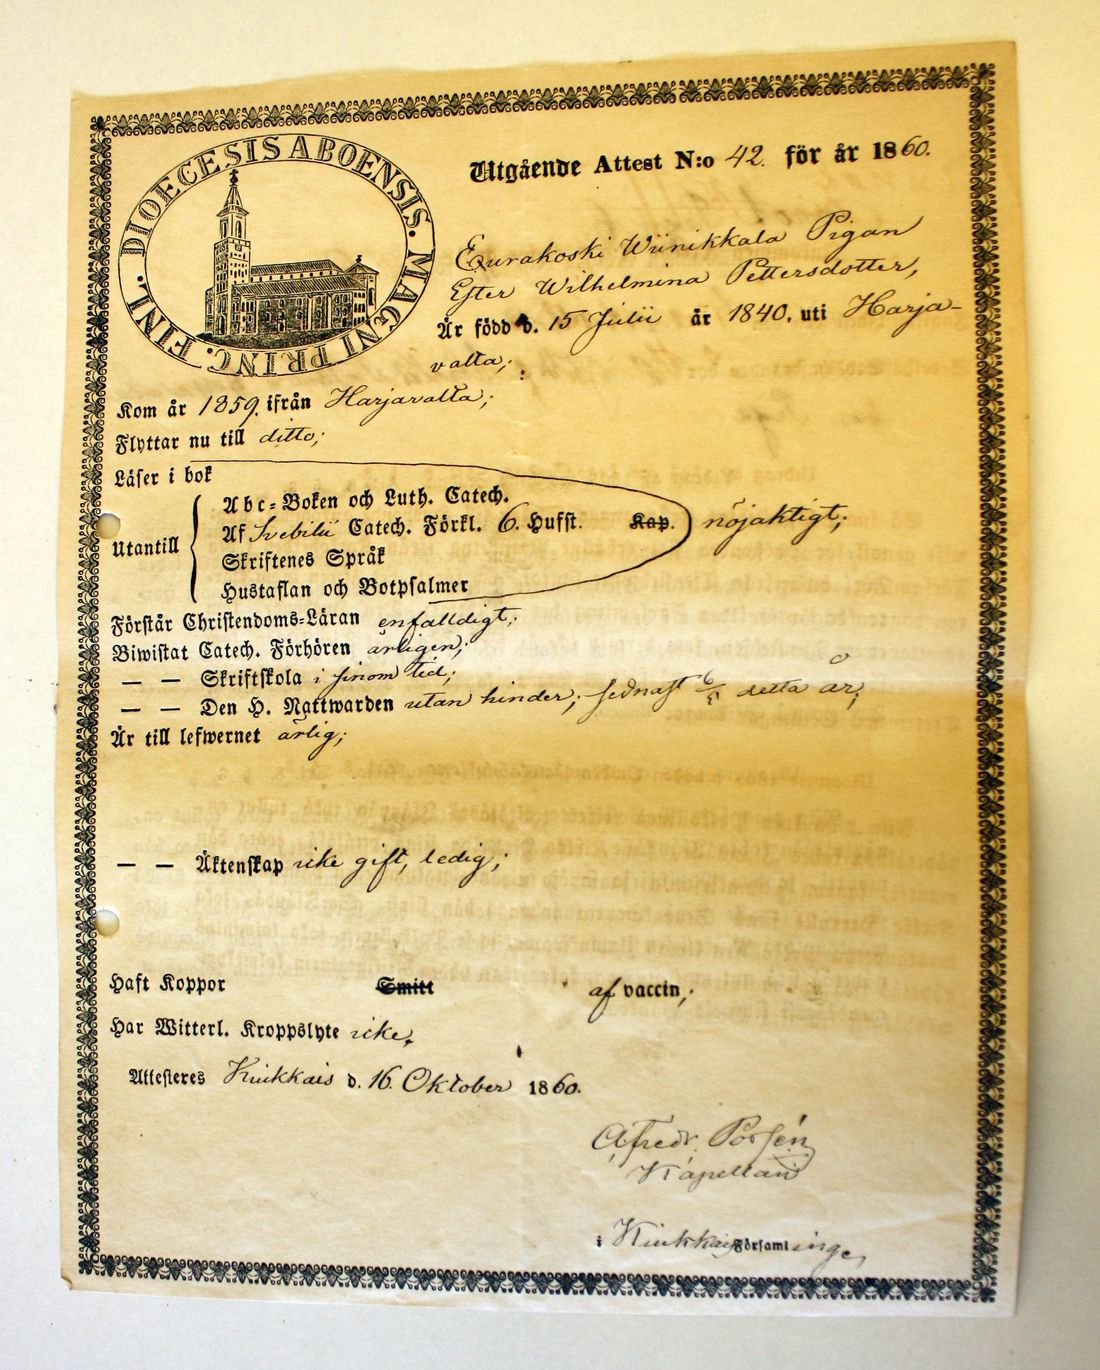 DIOECESIS ABOENSIS. MAGNI PRINC. FINL.
Utgående Attest N:o 42. för år 1860.
Eurakoski Wiinikkala Pigan
Ester Wilhelmina Pettersdotter,
Är född d. 15 Julii år 1840. uti Harja-
valta;
Kom år 1859. ifrån Harjavalta;
Flyttar nu till ditto;
Läser i bok
Utantill
Abc-Boken och Luth. Catech.
Af Svebilii Catech. Förkl. 6. Hufst. Kap. nöjaktigt;
Skriftenes Språk
Hustaflan och Botpsalmer
Förstår Christendoms-Läran enfaldigt;
Biwistat Catech. Förhören årligen;
— — Skriftskola i sinom tid;
— — Den H. Nattwarden utan hinder; sednast 6/5 detta år;
Är till lefwernet ärlig;
— — Äktenskap icke gift, ledig;
Haft Koppor Smitt af vaccin;
Har Witterl. Kroppslyte icke.
Attesteras Kiukkais d. 16. Oktober 1860.
Alfredr. Porsén
Kapellan
i Kiukkais Församlinge,